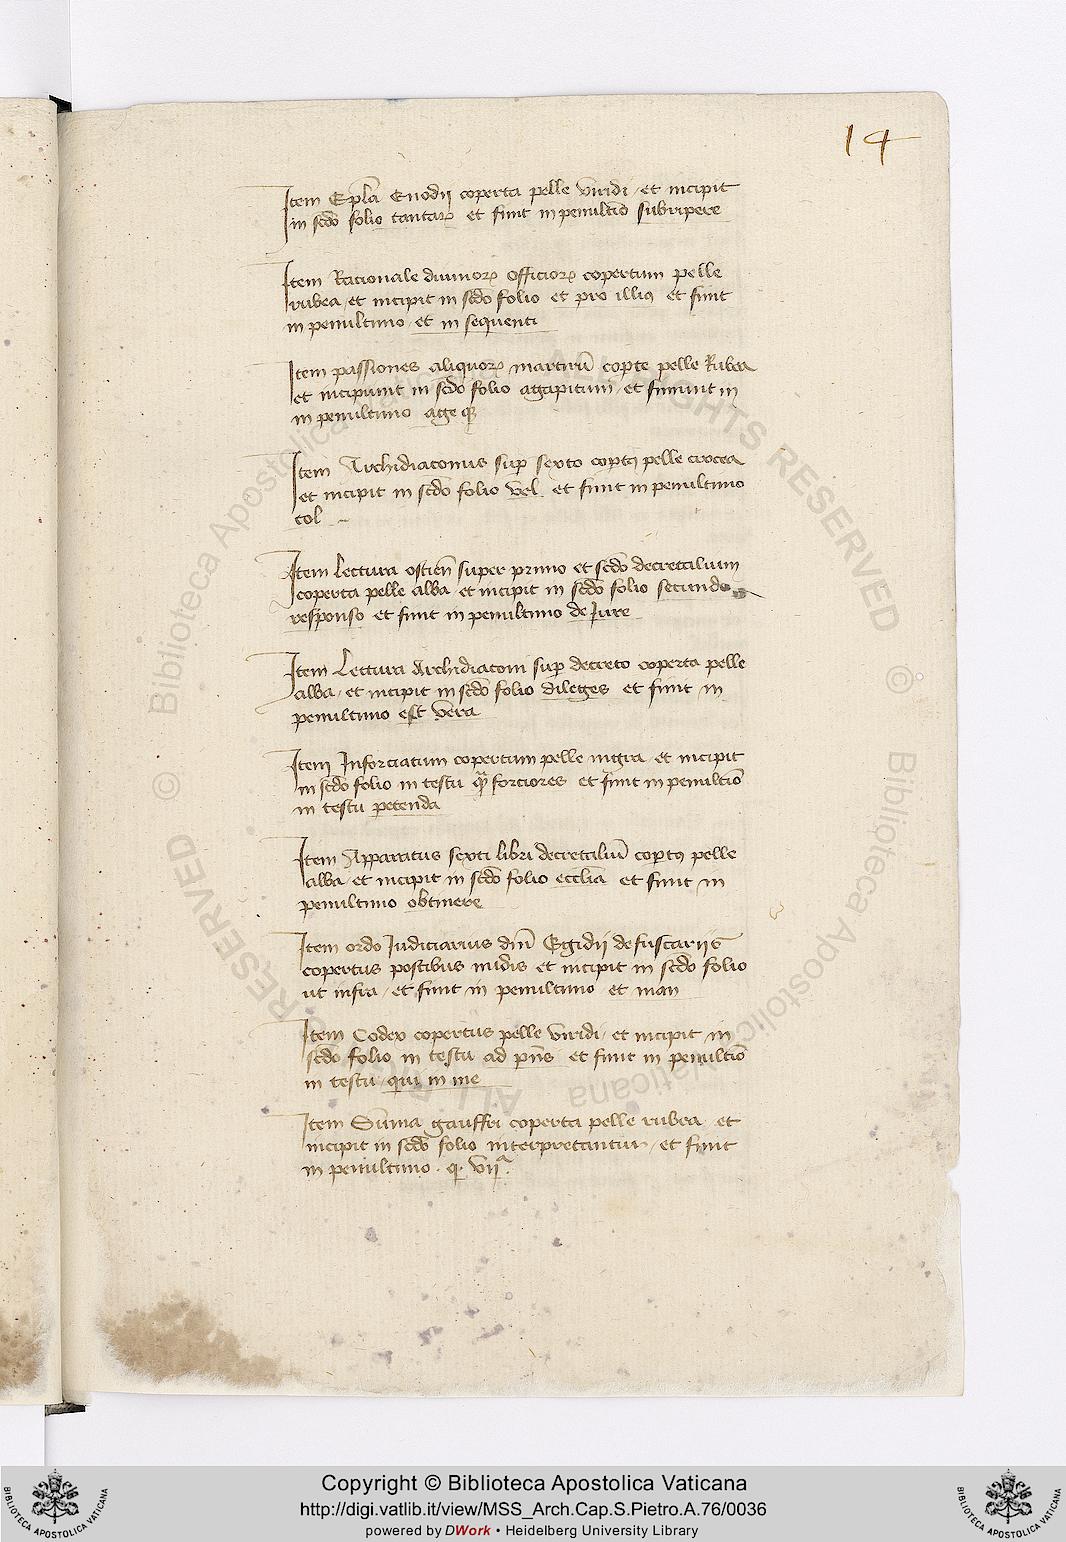 14
Item Epl̄a Enodij coperta pelle viridi et incipit
in scd̄o folio tantaꝝ et finit in penultīo subripere
Item Racionale diuinoꝝ officioꝝ copertum pelle
rubea et incipit in scd̄o folio et pro illis et finit
in penultimo et in sequenti
Item passiones aliquoꝝ martirū copte pelle Rubea
et incipiunt in scd̄o folio agapitum et finiunt in
in penultimo age qͥ
Item Archidiaconus suꝑ sexto coptꝰ pelle crocea
et incipit in scd̄o folio vel et finit in penultimo
col
Item Lectura ostien̄ super primo et scd̄o decretalium
coperta pelle alba et incipit in scd̄o folio secundo
responso et finit in penultimo de Jure
Item Lectura Archidiaconi suꝑ decreto coperta pelle
alba et incipit in scd̄o folio dileges et finit in
penultimo est vera
Item Inforciatum copertum pelle nigra et incipit
in scd̄o folio in testu forciores et finit in penultīo
in testu petenda
Item Apparatus sexti libri decretaliū coptꝰ pelle
alba et incipit in scd̄o folio eccl̄ia et finit in
penultimo obtinere
Item ordo Judiciarius dn̄i Egidij de fuscarijs
copertus postibus nudis et incipit in scd̄o folio
ut infra et finit in penultimo et man
Item Codex copertus pelle viridi et incipit in
scd̄o folio in testu ad pn̄s et finit in penultīo
in testu qui in me
Item Sūma gauffri coperta pelle rubea et
incipit in scd̄o folio interpretantur et finit
in penultimo . q. vijᵃ.
© Biblioteca Apostolica Vaticana ALL RIGHTS RESERVED
© Biblioteca Apostolica Vaticana ALL RIGHTS RESERVED
Copyright © Biblioteca Apostolica Vaticana
http://digi.vatlib.it/view/MSS_Arch.Cap.S.Pietro.A.76/0036
powered by DWork • Heidelberg University Library
BIBLIOTECA APOSTOLICA VATICANA
BIBLIOTECA APOSTOLICA VATICANA